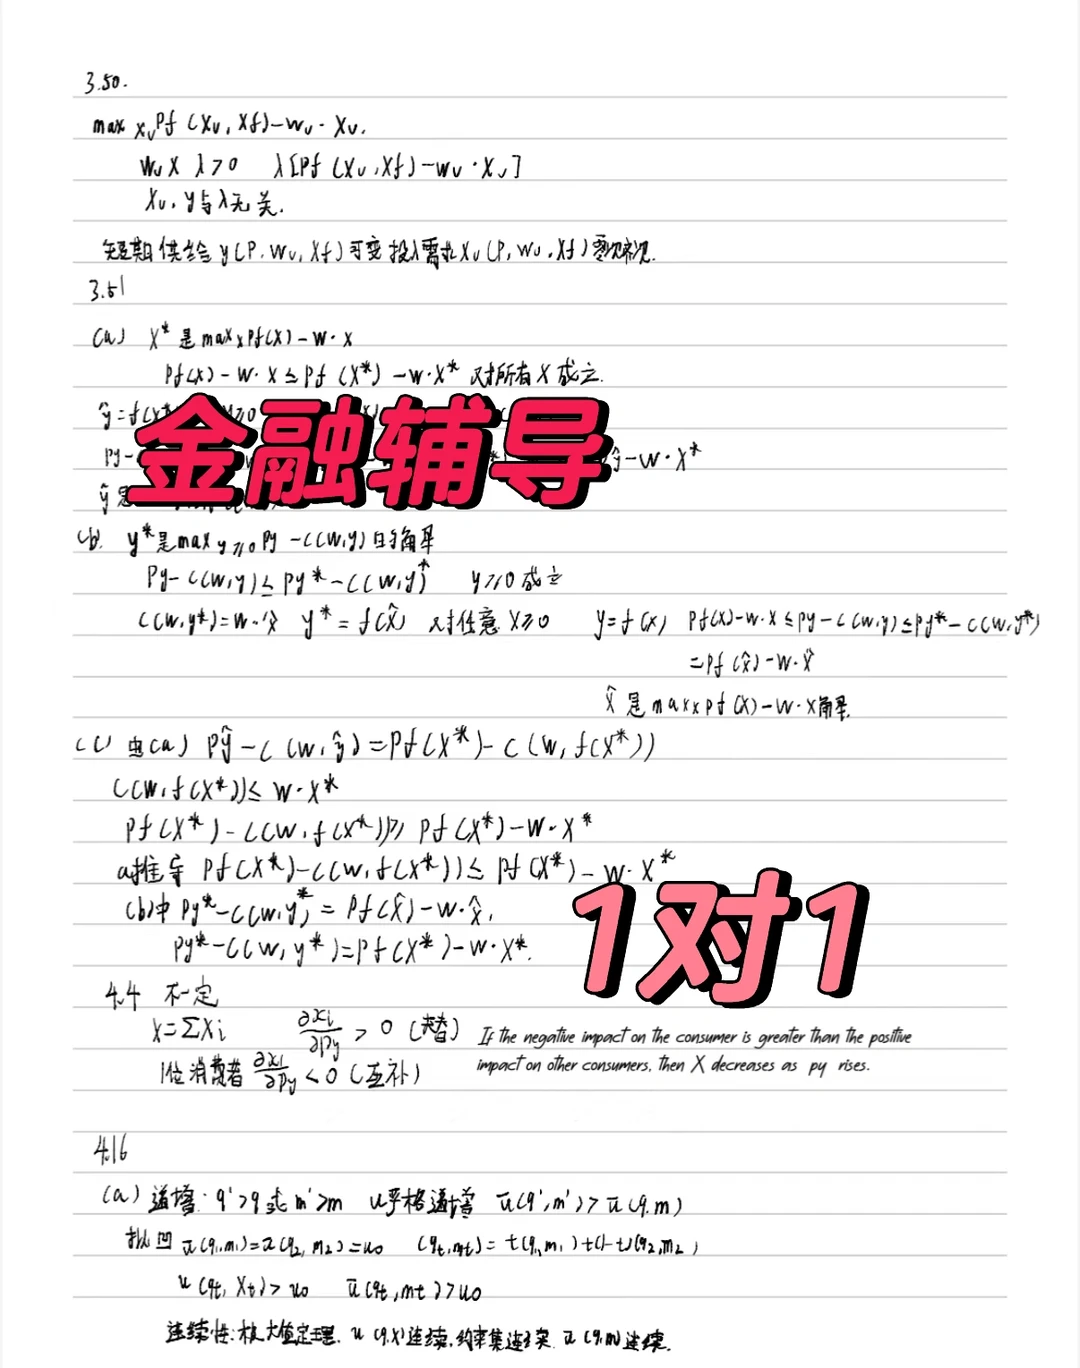 3.50.
max xᵥ Pf (Xᵥ, Xf)-Wᵥ·Xᵥ.
WᵥX λ>0 λ[Pf (Xᵥ,Xf)-Wᵥ·Xᵥ]
Xᵥ, y与λ无关.
短期供给y(P,Wᵥ,Xf)可变投入需求Xᵥ(P,Wᵥ,Xf)零次齐次.
3.51
(a) X*是maxₓPf(X)-W·X
Pf(X)-W·X≤Pf(X*)-W·X* 对所有X成立.
ŷ=f(X*
金融辅导
Py-
ŷ-W·X*
ŷ是
(b. y*是max y≥0 Py-C(W,y)的解
Py-C(W,y)≤Py*-C(W,y*) y≥0成立
C(W,y*)=W·x̂ y*=f(x̂) 对任意X≥0 y=f(x) Pf(X)-W·X≤Py-C(W,y)≤Py*-C(W,y*)
=Pf(x̂)-W·x̂
x̂是maxₓPf(X)-W·X解.
(c) 由(a) Pŷ-C(W,ŷ)=Pf(X*)-C(W,f(X*))
C(W,f(X*))≤W·X*
Pf(X*)-C(W,f(X*))≥Pf(X*)-W·X*
a推导 Pf(X*)-C(W,f(X*))≤Pf(X*)-W·X*
(b)中Py*-C(W,y*)=Pf(x̂)-W·x̂,
Py*-C(W,y*)=Pf(X*)-W·X*.
1对1
4.4 不一定
X=ΣXi ∂xi/∂py>0 (替)
1位消费者 ∂xi/∂py<0 (互补)
If the negative impact on the consumer is greater than the positive
impact on other consumers, then X decreases as py rises.
4.16
(a) 递增: q'>q或m'>m u严格递增 ū(q',m')>ū(q,m)
拟凹 ū(q₁,m₁)=ū(q₂,m₂)=u₀ (qt,mt)=t(q₁,m₁)+(1-t)(q₂,m₂)
u(qt,Xt)>u₀ ū(qt,mt)>u₀
连续性: 极大值定理. u(q,X)连续,约束集连续 ū(q,m)连续.